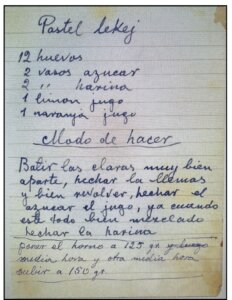 Pastel lekej
12 huevos
2 vasos azucar
2 " harina
1 limon jugo
1 naranja jugo
Modo de hacer
Batir las claras muy bien
aparte, hechar la llemas
y bien revolver, hechar el
azucar el jugo, ya cuando
este todo bien mezclado
hechar la harina
poner el horno a 125 gr. y
media hora y otra media hora
subir a 150 gr.